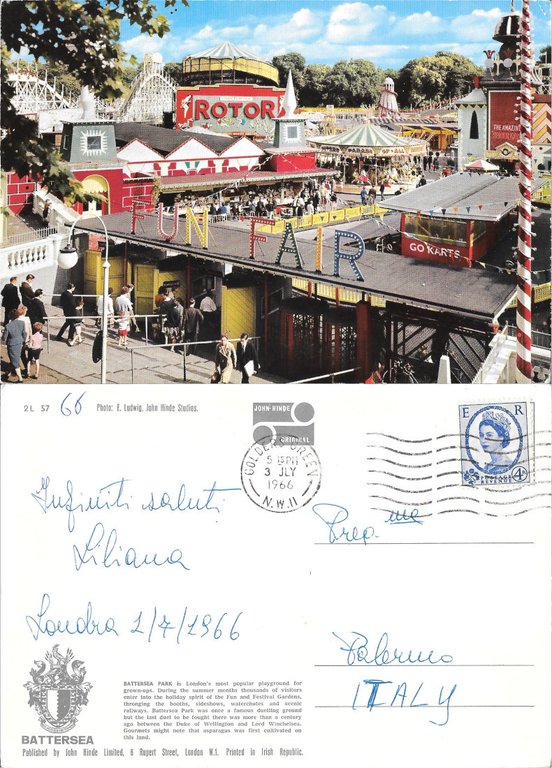 ROTOR
THE AMAZING
FUN FAIR
GO KARTS
2L 57
66
Photo: E. Ludwig, John Hinde Studios.
JOHN HINDE
ORIGINAL
GOLDERS GREEN
5 15 PM
3 JLY
1966
N.W.11
E R
POSTAGE
REVENUE
4D
Infiniti saluti
Liliana
Londra 1/7/1966
Preg. me
Palermo
ITALY
BATTERSEA
BATTERSEA PARK is London's most popular playground for
grown-ups. During the summer months thousands of visitors
enter into the holiday spirit of the Fun and Festival Gardens,
thronging the booths, sideshows, waterchutes and scenic
railways. Battersea Park was once a famous duelling ground
but the last duel to be fought there was more than a century
ago between the Duke of Wellington and Lord Winchelsea.
Gourmets might note that asparagus was first cultivated on
this land.
Published by John Hinde Limited, 6 Rupert Street, London W.1. Printed in Irish Republic.